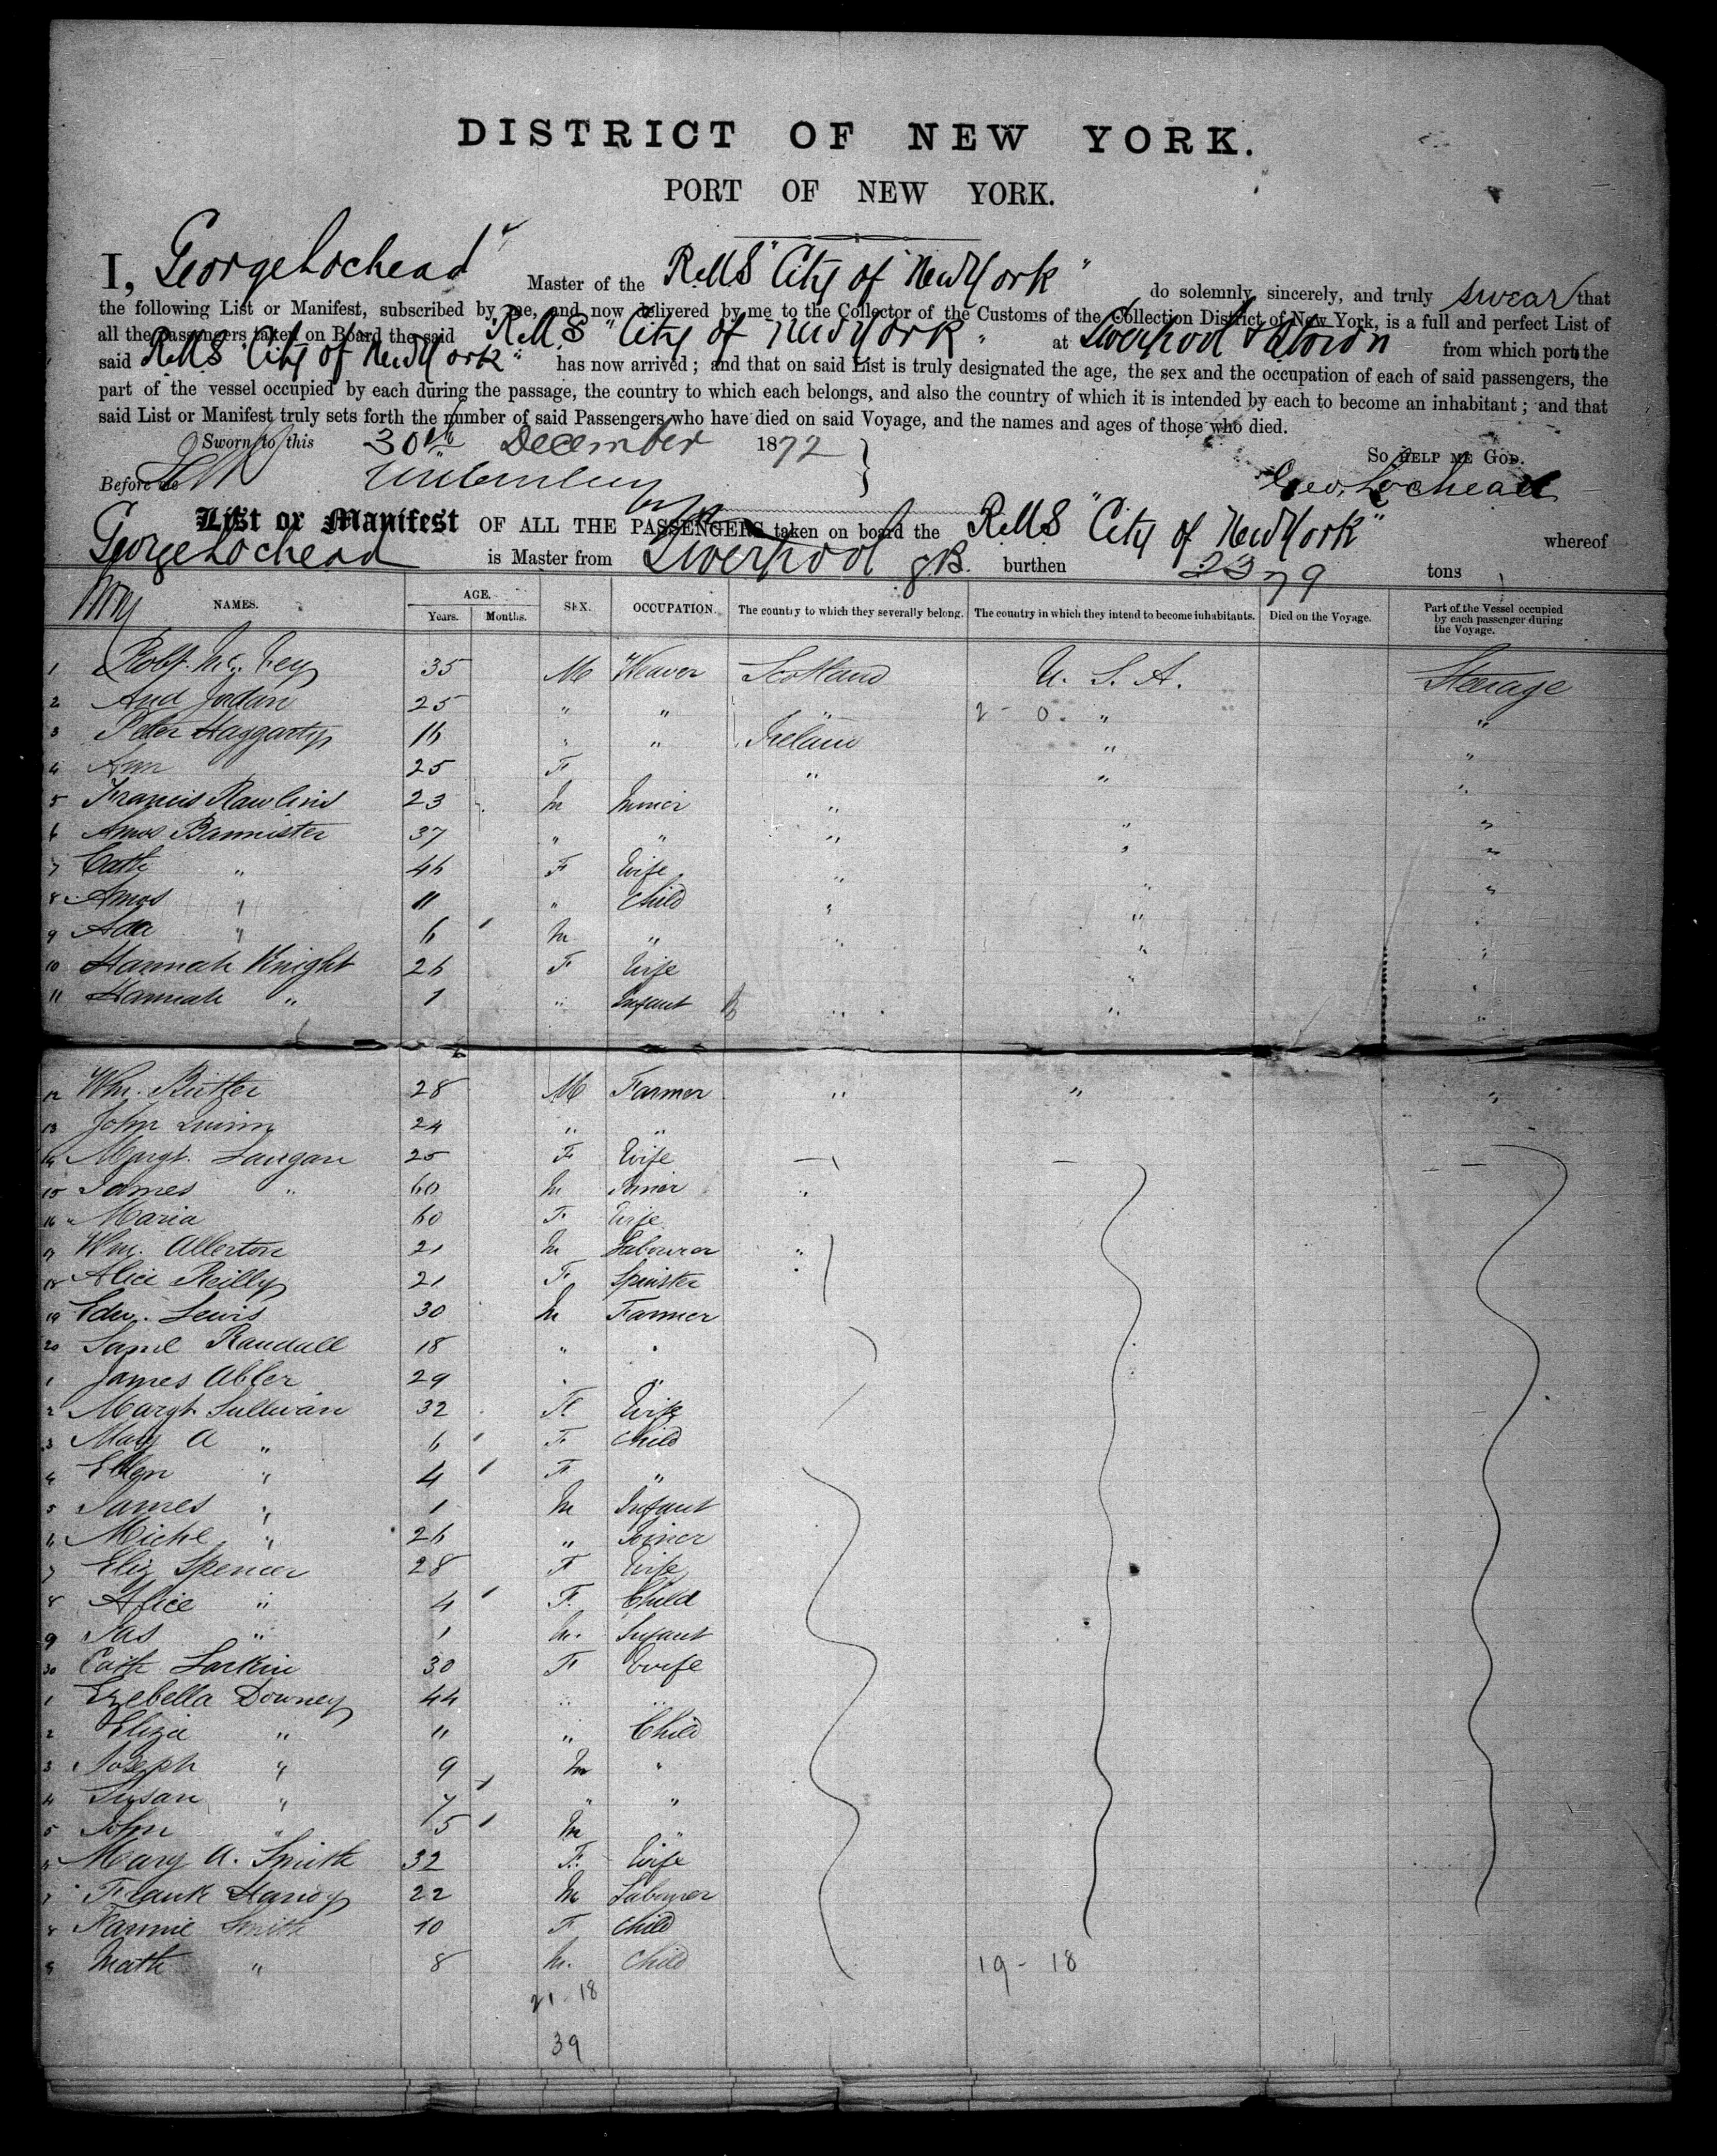 DISTRICT OF NEW YORK.
PORT OF NEW YORK.
I, George Lochead Master of the RMS "City of New York" do solemnly, sincerely, and truly swear that
the following List or Manifest, subscribed by me, and now delivered by me to the Collector of the Customs of the Collection District of New York, is a full and perfect List of
all the passengers taken on Board the said RMS "City of New York" at Liverpool from which port the
said RMS "City of New York" has now arrived; and that on said List is truly designated the age, the sex and the occupation of each of said passengers, the
part of the vessel occupied by each during the passage, the country to which each belongs, and also the country of which it is intended by each to become an inhabitant; and that
said List or Manifest truly sets forth the number of said Passengers who have died on said Voyage, and the names and ages of those who died.
Sworn to this 30th December 1872
So HELP ME GOD.
Before me
Geo. Lochead
List or Manifest OF ALL THE PASSENGERS taken on board the RMS "City of New York" whereof
George Lochead is Master from Liverpool burthen 2379 tons
NAMES. AGE. Years. Months. SEX. OCCUPATION. The country to which they severally belong. The country in which they intend to become inhabitants. Died on the Voyage. Part of the Vessel occupied by each passenger during the Voyage.
1 Robt. Mc. 35 M Weaver Scotland U. S. A. Steerage
2 And Jordan 25 " " " 2 - 0. " "
3 Peter Haggarty 16 " " Ireland " "
4 Ann 25 F " " "
5 Francis Rawlins 23 M " "
6 Amos Bannister 37 " " " " "
7 Cath " 46 F Wife " " "
8 Amos " 11 " Child " " "
9 Ada " 6 M " " " "
10 Hannah Knight 26 F Wife " "
11 Hannah " 1 " Infant " " "
12 Wm. Butler 28 M Farmer " " "
13 John Quinn 24 " "
14 Margt. Langan 25 F Wife
15 James " 60 M "
16 Maria 60 F Wife
17 Wm. Allerton 21 M Labourer "
18 Alice Reilly 21 F Spinster
19 Edw. Lewis 30 M Farmer
20 Saml Randall 18 " "
1 James Abler 29 " "
2 Margt. Sullivan 32 F Wife
3 Mary A " 6 F Child
4 Ellen " 4 F "
5 James " 1 M Infant
6 Michl " 26 "
7 Eliz Spencer 28 F Wife
8 Alice " 4 F. Child
9 Jas " 1 M. Infant
30 Cath Larkin 30 F Wife
1 Ezebella Downey 44 " "
2 Eliza " 11 " Child
3 Joseph " 9 M "
4 Susan " 7 " "
5 John " 5 M "
6 Mary A. Smith 32 F. Wife
7 Frank Handy 22 M Labourer
8 Fannie Smith 10 F Child
9 Math " 8 M. Child
19 - 18
21 - 18
39